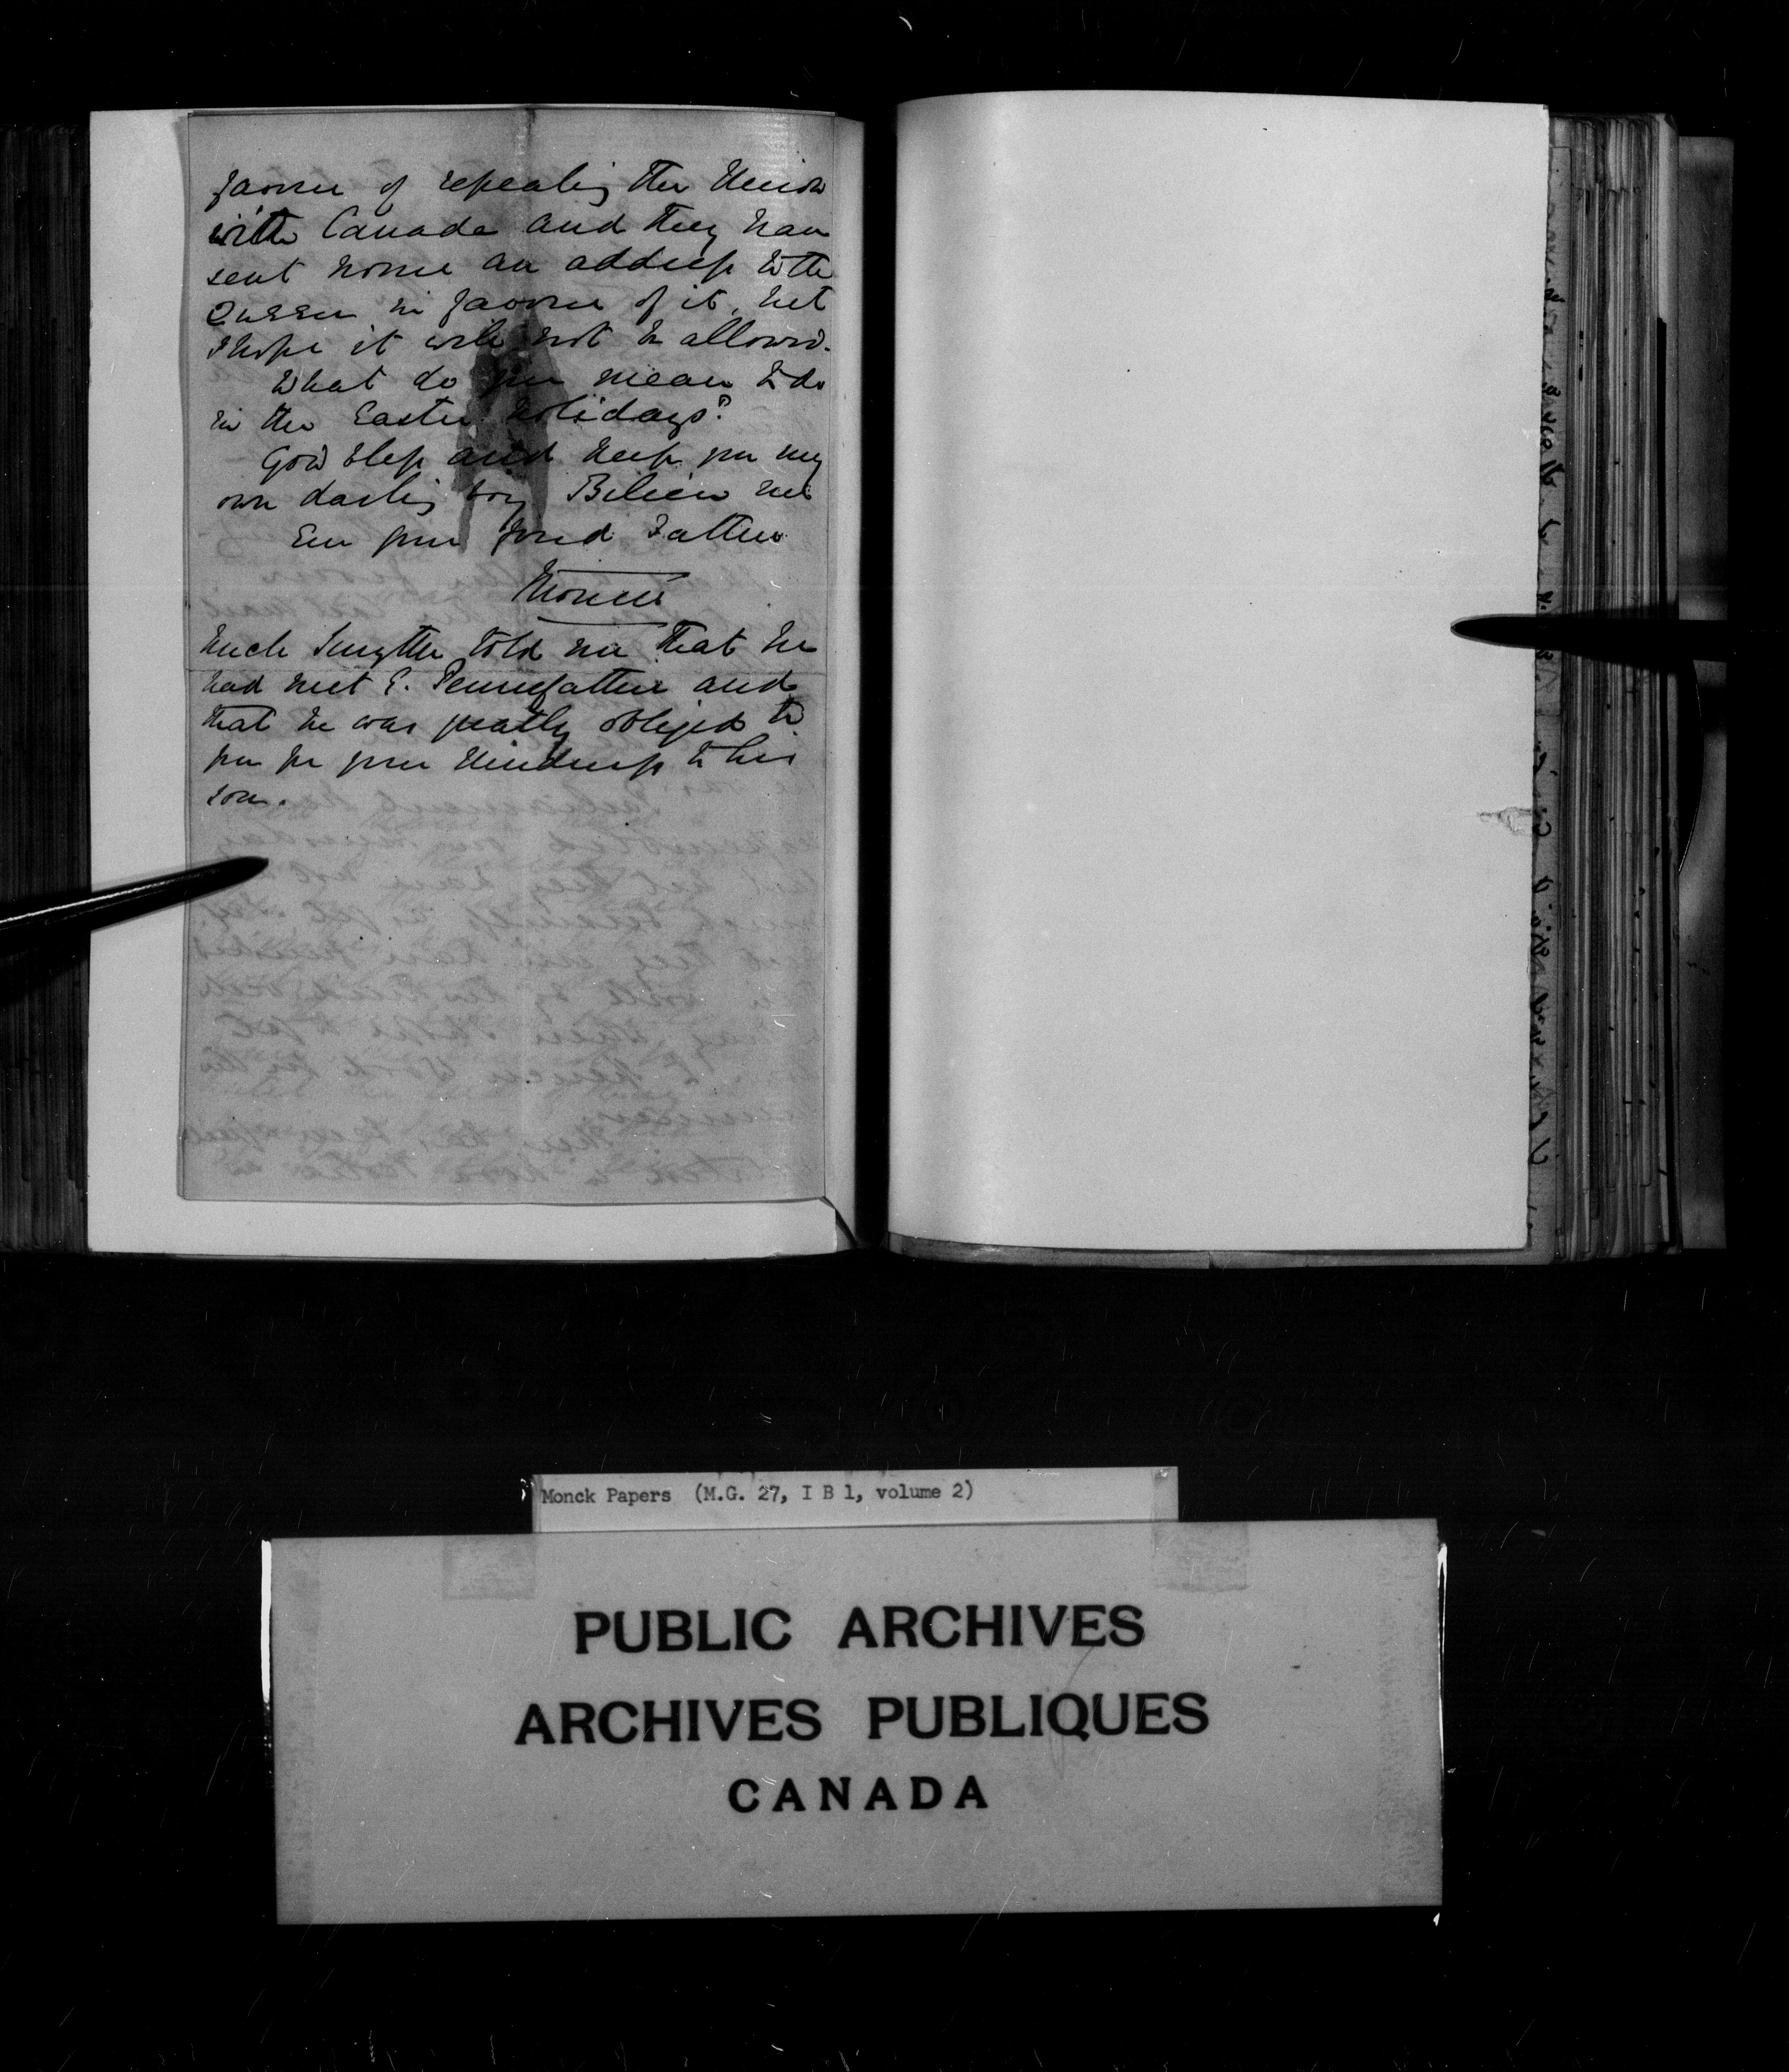 favour of repealing the Union
with Canada and they have
sent home an address to the
Queen in favour of it, but
I hope it will not be allowed.
What do you mean to do
in the Easter holidays?
God bless and keep you my
own darling boy Believe me
Ever your fond Father
Monck
Uncle Smythe told me that he
had met E. Pennefather and
that he was greatly obliged to
you for your kindness to his
son.
Monck Papers (M.G. 27, I B 1, volume 2)
PUBLIC ARCHIVES
ARCHIVES PUBLIQUES
CANADA